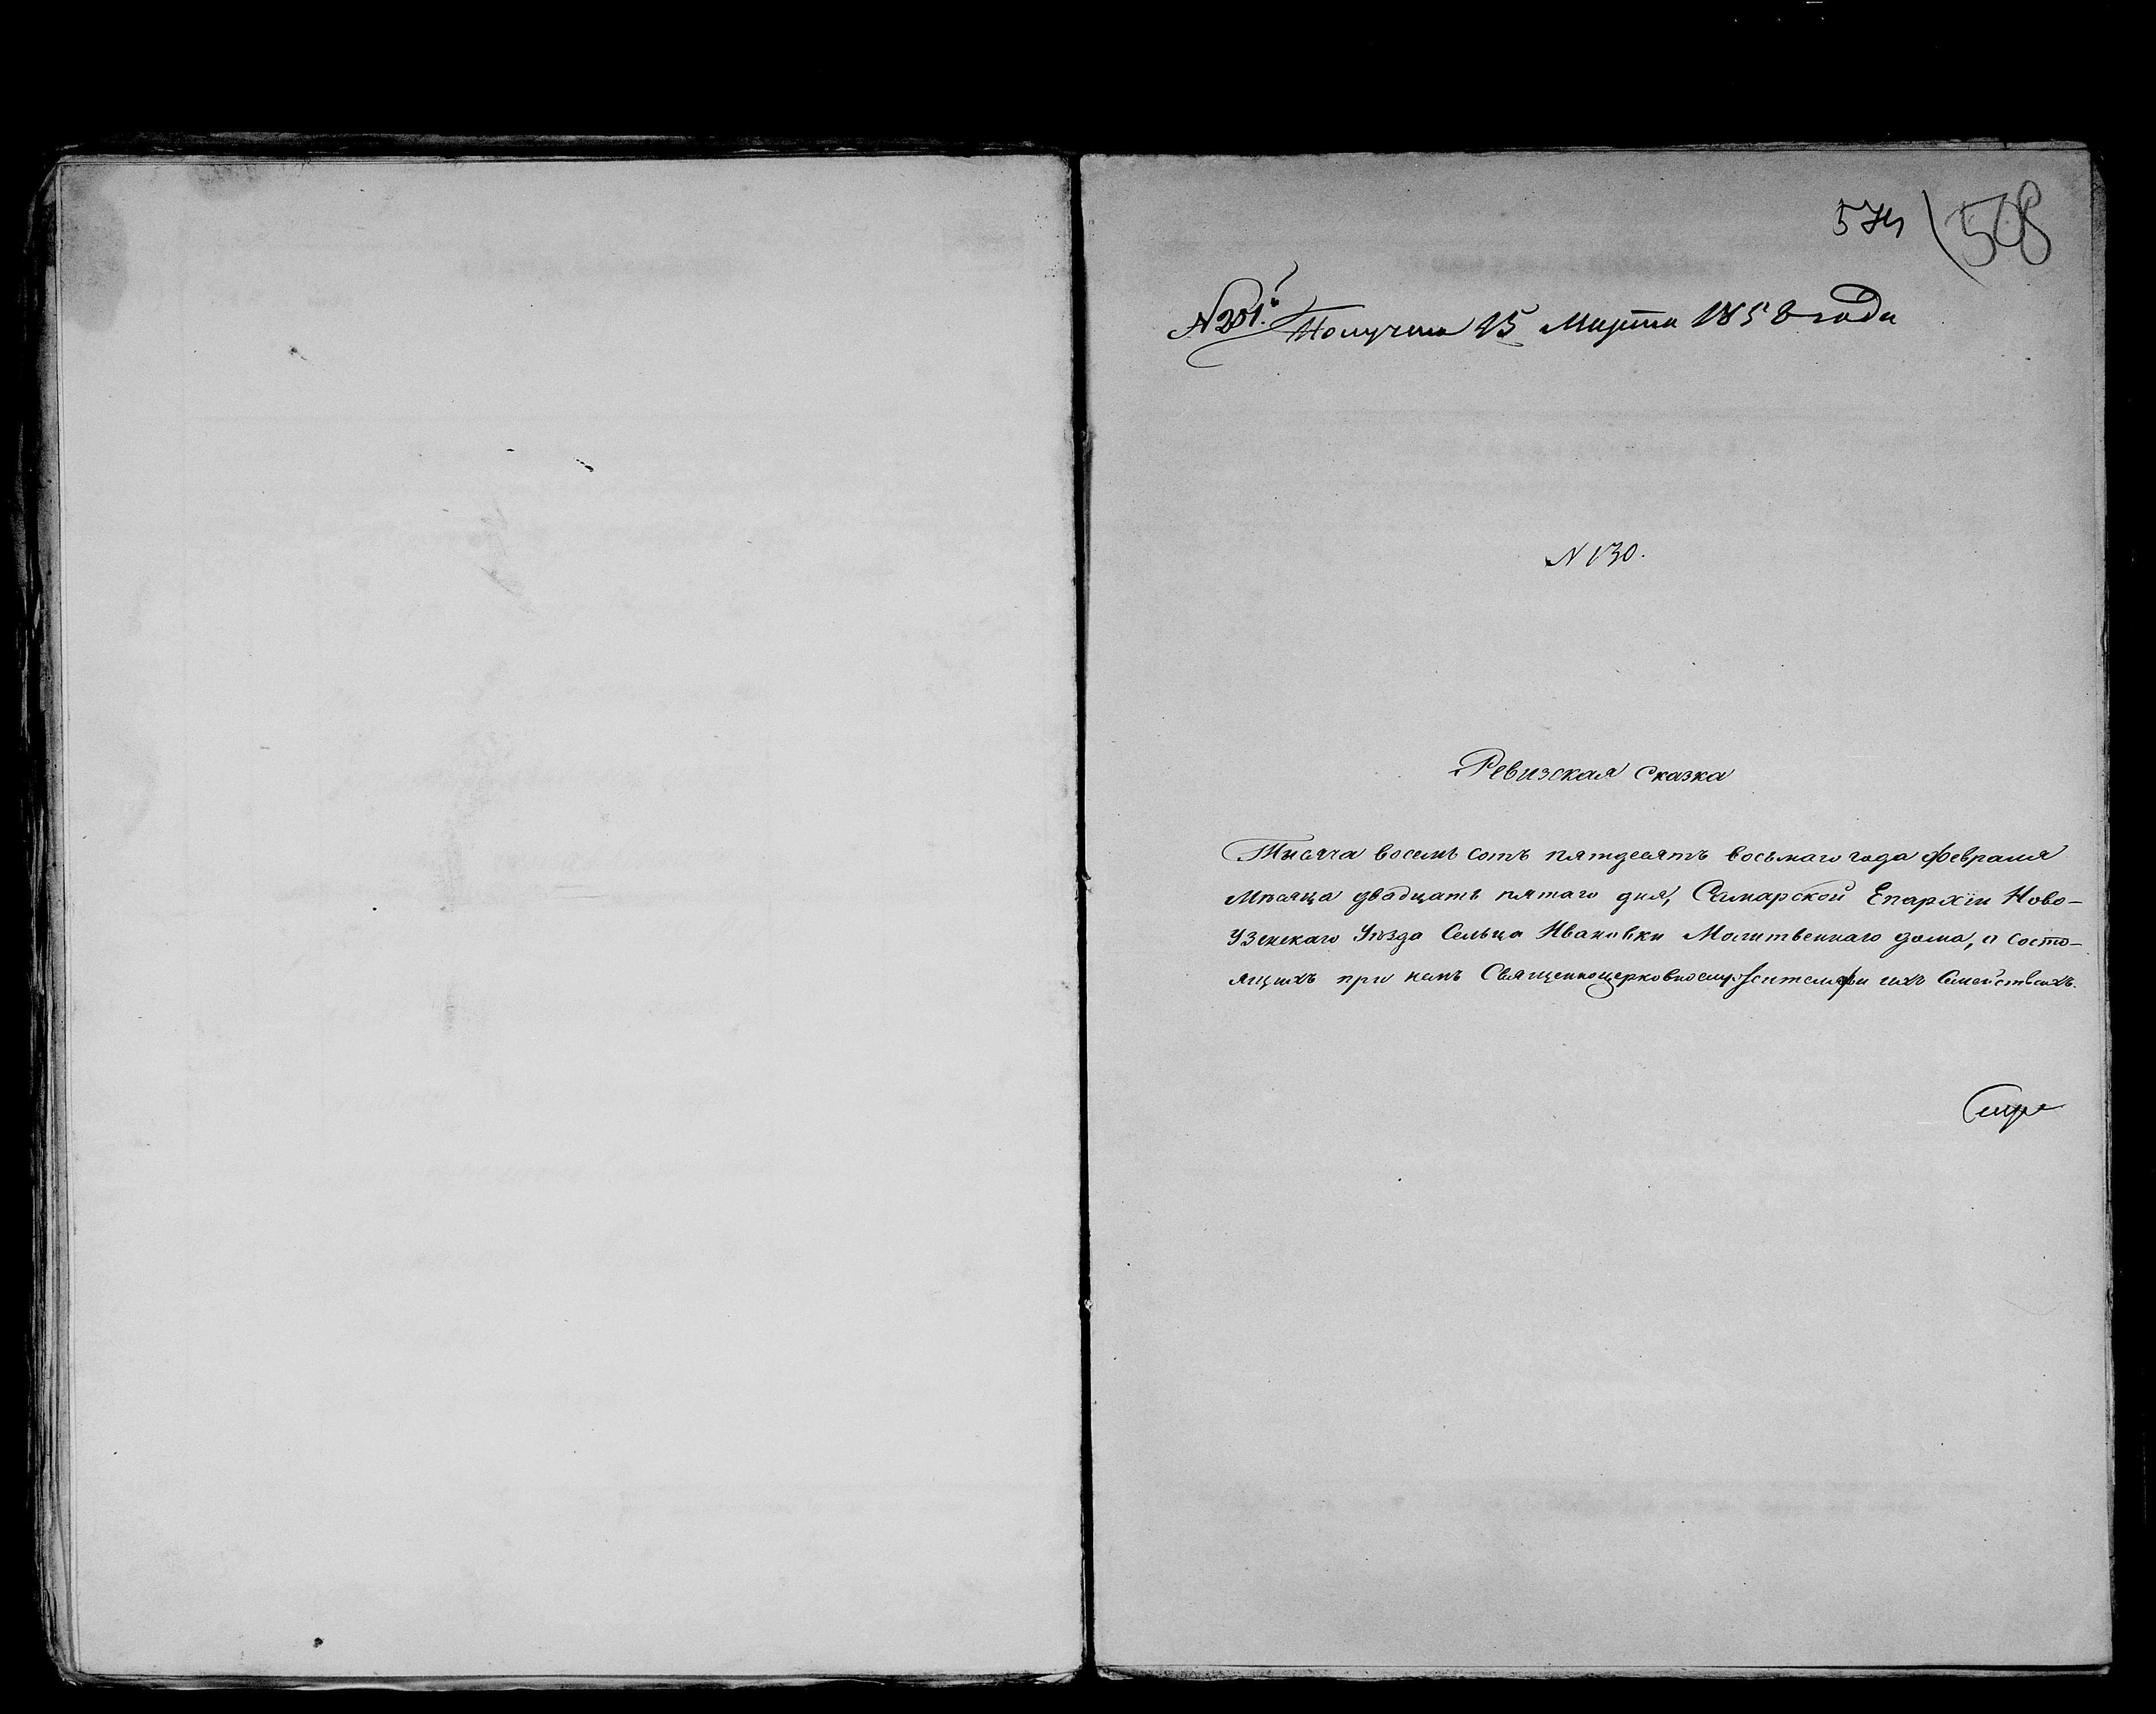 508
№ 201. Получена 15 Марта 1858 года
N 130.
Ревизская сказка
Тысяча восемь сотъ пятдесятъ восьмаго года Февраля
Мѣсяца двадцать пятаго дня, Самарской Епархіи Ново-
узенскаго Уѣзда Сельца Ивановки Молитвеннаго дома, о состо-
ящихъ при немъ Священноцерковнослужителяхъ и ихъ Семействахъ.